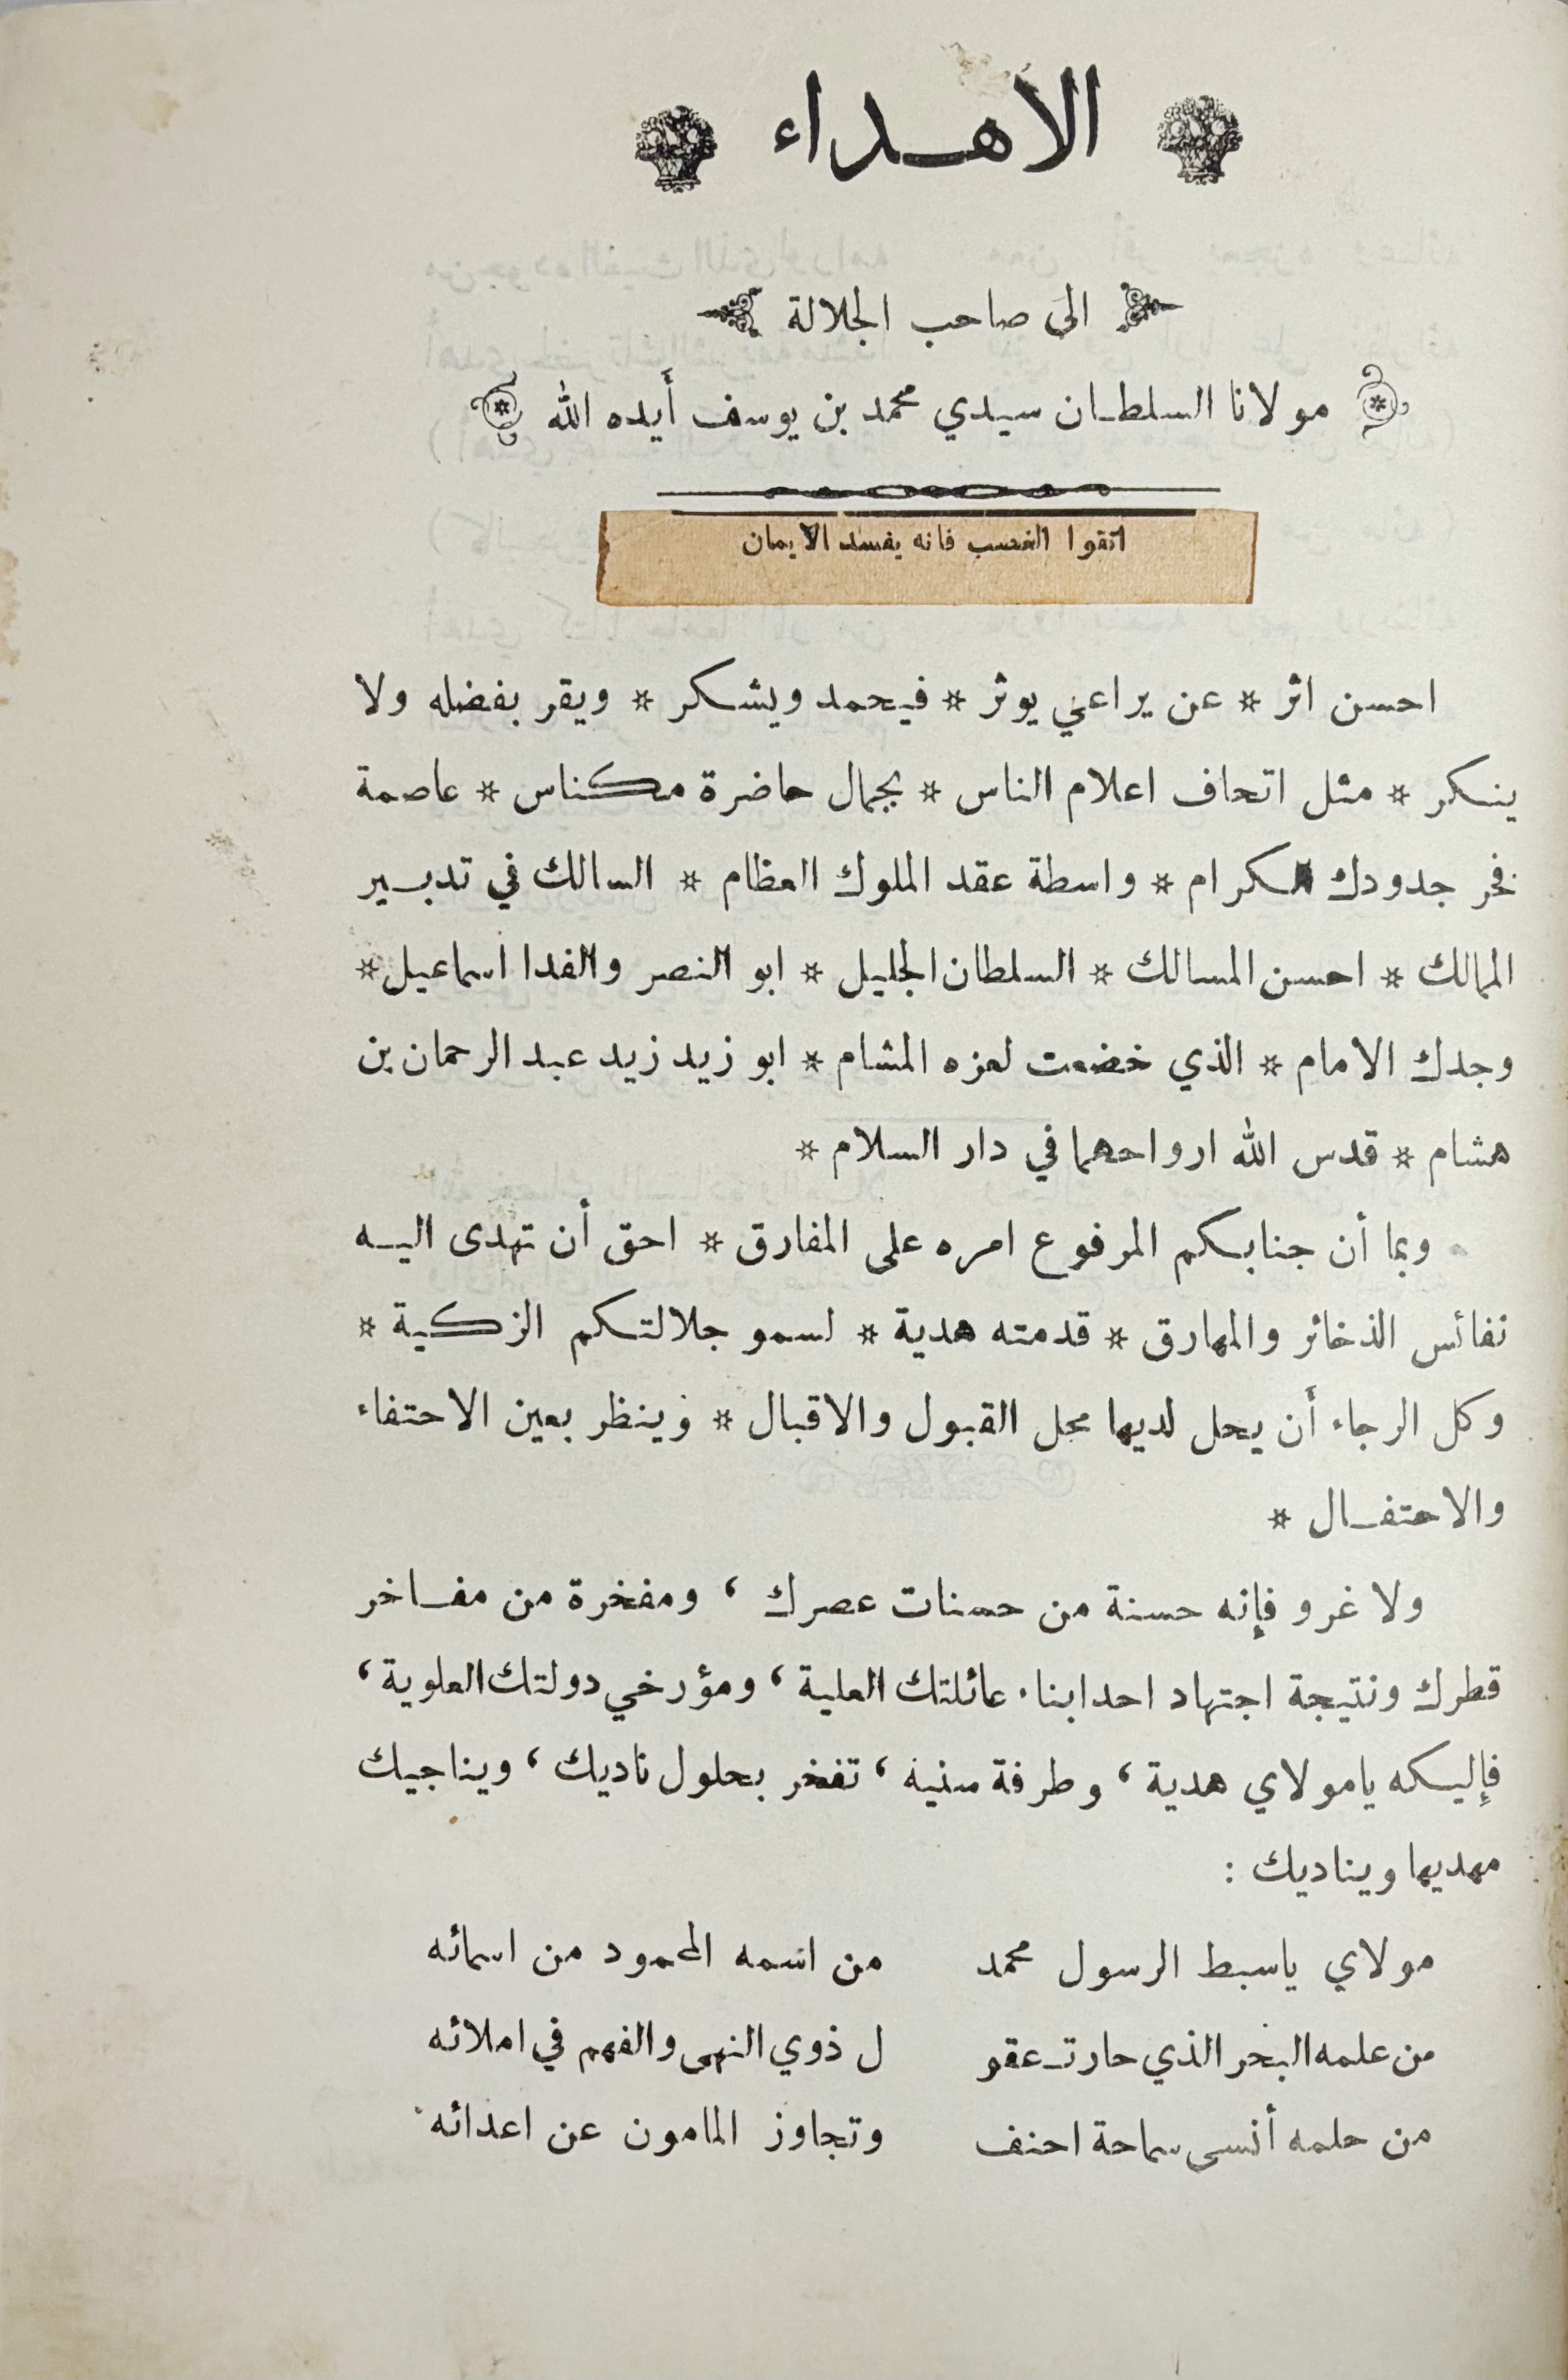 الاهداء
الى صاحب الجلالة
مولانا السلطان سيدي محمد بن يوسف أيده الله
اتقوا الغضب فانه يفسد الايمان
احسن اثر * عن يراعي يوثر * فيحمد ويشكر * ويقر بفضله ولا
ينكر * مثل اتحاف اعلام الناس * بجمال حاضرة مكناس * عاصمة
فخر جدودك الكرام * واسطة عقد الملوك العظام * السالك في تدبير
الممالك * احسن المسالك * السلطان الجليل * ابو النصر والفدا اسماعيل *
وجدك الامام * الذي خضعت لعزه المشام * ابو زيد زيد عبد الرحمان بن
هشام * قدس الله ارواحهما في دار السلام *
وبما أن جنابكم المرفوع امره على المفارق * احق أن تهدى اليه
نفائس الذخائر والمهارق * قدمته هدية * لسمو جلالتكم الزكية *
وكل الرجاء أن يحل لديها محل القبول والاقبال * وينظر بعين الاحتفاء
والاحتفال *
ولا غرو فإنه حسنة من حسنات عصرك ، ومفخرة من مفاخر
قطرك ونتيجة اجتهاد احد ابناء عائلتك العلية ، ومؤرخي دولتك العلوية ،
فإليكه يامولاي هدية ، وطرفة سنية ، تفخر بحلول ناديك ، ويناجيك
مهديها ويناديك :
مولاي ياسبط الرسول محمد من اسمه المحمود من اسمائه
من علمه البحر الذي حارت عقو ل ذوي النهى والفهم في املائه
من حلمه أنسى سماحة احنف وتجاوز المامون عن اعدائه